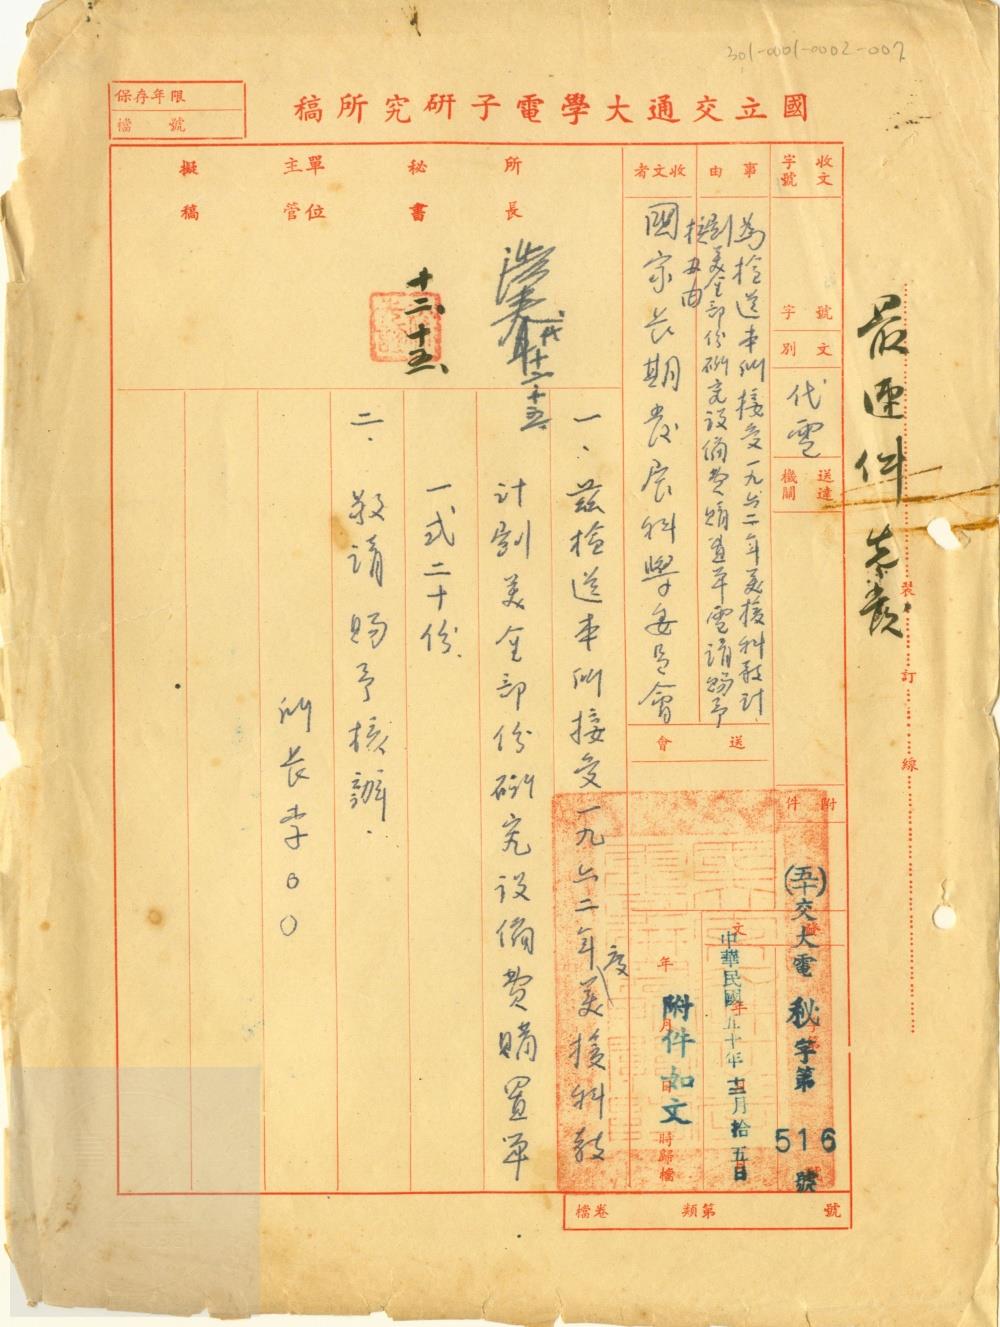 301-0001-0002-007
國立交通大學電子研究所稿
保存年限
檔號
最速件
收文
字號
文號
別字
代電
送達
機關
附件
事由
為檢送本所接受一九六二年美援科教計
劃美金部份研究設備費購置單電請賜予
核辦由
收文者
國家長期發展科學委員會
送會
所長
代
十二、十五
秘書
十二、十五、
單位
主管
擬稿
一、茲檢送本所接受一九六二年度美援科教
計劃美金部份研究設備費購置單
一式二十份
二、敬請賜予核辦.
所長李○○
(五十)交大電秘字第516號
中華民國五十年十二月拾五日
附件如文
年月日時歸檔
號
第類
卷檔
裝訂線